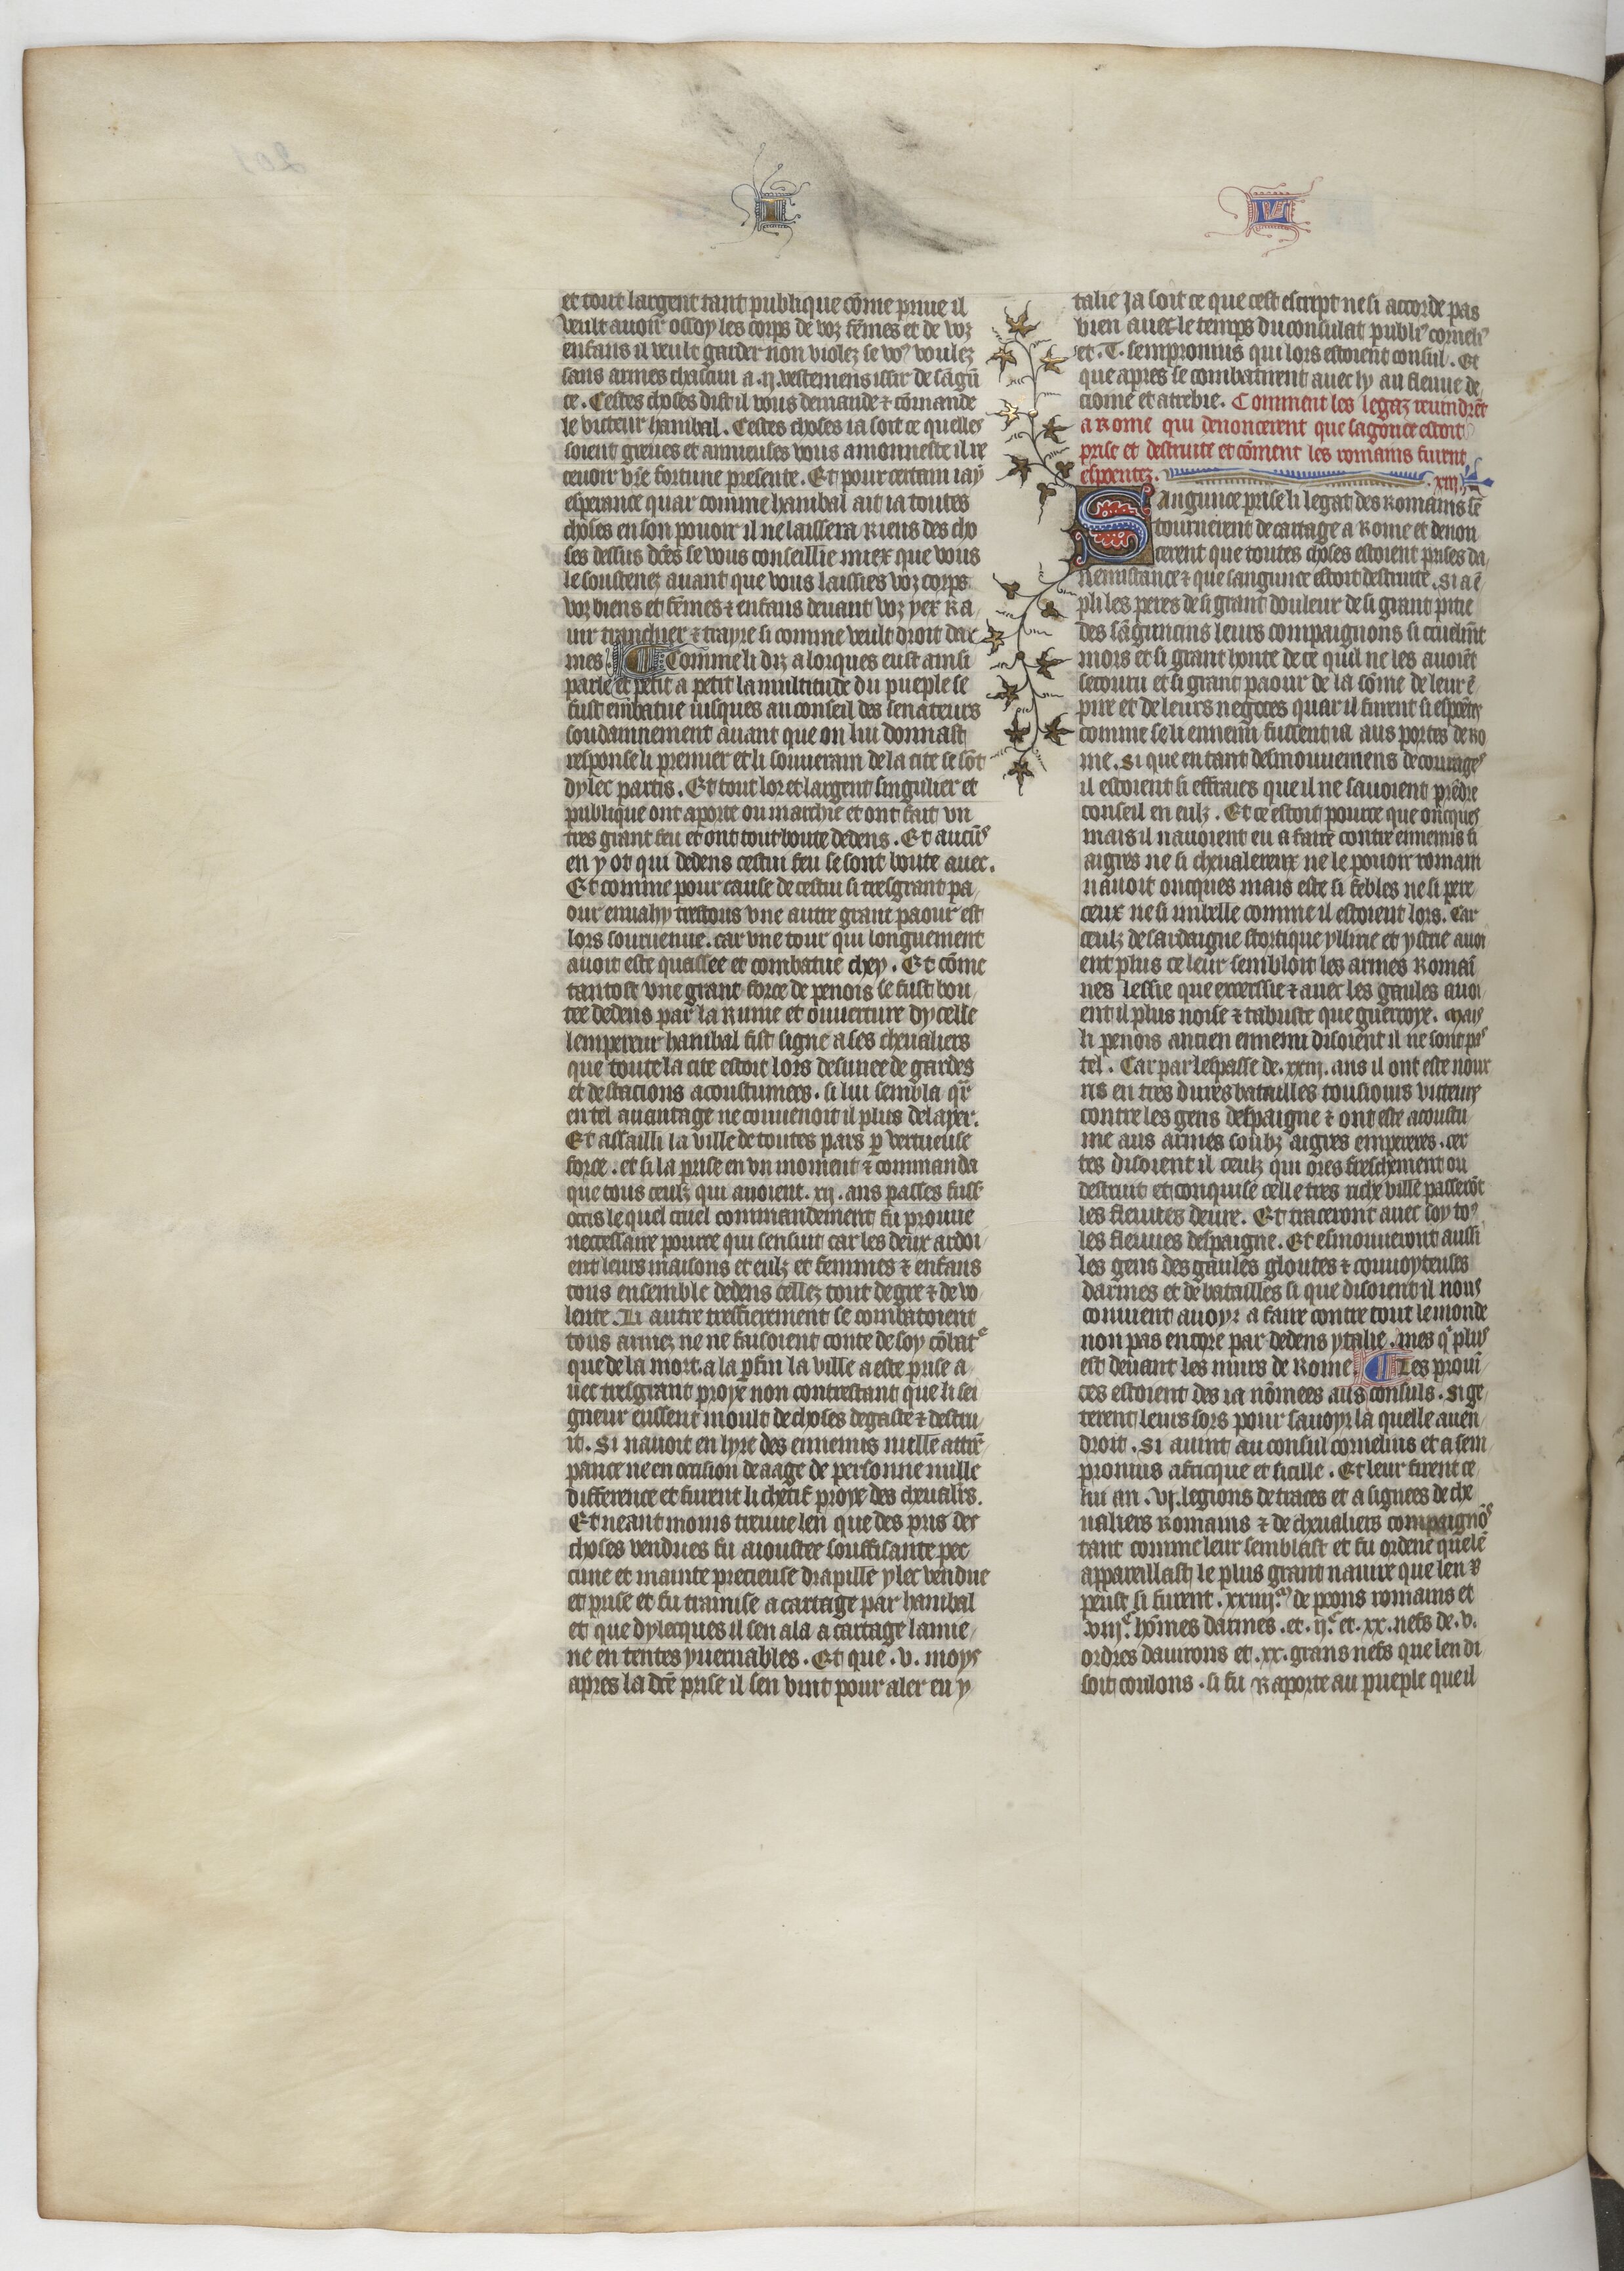 I
IV
et tout largent tant publique cōme priue il
veult auoir ossy les corps de voz fēmes et de voz
enfans il veult garder non violez se vo9 voulez
sans armes chascun a .ij. vestemens issir de sāgū
te . Cestes choses dist il vous demande ⁊ cōmande
le victeur hanibal . Cestes choses ia soit ce quelles
soient grieues et annieuses vous amonneste il re
ceuoir vr̄e fortune presente . Et pour certain iay
esperance quar comme hanibal ait ia toutes
choses en son pouoir il ne laissera Riens des cho
ses dessus dc̄es se vous conseillie miex que vous
le soustenez auant que vous laissies voz corps
voz biens et fēmes ⁊ enfans deuant voz yex Ra
uir tranchier ⁊ trayre si comme veult droit dar
mes Comme li diz alorques eust ainsi
parle et petit a petit la multitude du pueple se
fust embatue iusques au conseil des senateurs
soudainnement auant que on lui donnast
response li premier et li souuerain de la cite se sōt
dylec partis . Et tout lor et largent singulier et
publique ont aporte ou marchie et ont fait vn
tres grant feu et ont tout boute dedens . Et aucūs
en y ot qui dedens cestui feu se sont boute auec .
Et comme pour cause de cestui si tresgrant pa
our enuahy trestous vne autre grant paour est
lors souruenue . car vne tour qui longuement
auoit este quassee et combatue chey . Et cōme
tantost vne grant force de penois se fust bou
tee dedens par la Ruine et ouuerture dycelle
lempereur hanibal fist signe a ses cheualiers
que toute la cite estoit lors desunee de gardes
et de stacions acoustumees . si lui sembla qr̄
en tel auantage ne conuenoit il plus delayer .
Et assailli la ville de toutes pars p vertueuse
force . et si la prise en vn moment ⁊ commanda
que tous ceulz qui auoient . xij . ans passes fuss
occis le quel cruel commandement fu prouue
neccessaire pource qui sensuit car les deux ardoi
ent leurs maisons et eulz et femmes ⁊ enfans
tous ensemble dedens celles tout de gre ⁊ de vo
lente . Li autre tresfierement se combatoient
tous armez ne ne faisoient conte de soy cōbatͤ
que de la mort . a la p fin la ville a este prise a
uec tresgrant proye non contrestant que li sei
gneur eussent moult de choses degaste ⁊ destru
it . Si nauoit en lyre des ennemis nulle attrē
pance ne en occision de aage de personne nulle
difference et furent li chetif proye des cheualrs .
Et neant moins treuue len que des pris des
choses vendues fu aioustee souffisante pec
cune et mainte precieuse drapille ylec vendue
et prise et fu tramise a cartage par hanibal
et que dylecques il sen ala a cartage lanne
ne en tentes yuernables . Et que . v . moys
apres la dc̄e prise il sen vint pour aler en y
talie Ja soit ce que cest escript ne si accorde pas
bien auec le temps du consulat publi9 corneli9
et . T . sempronius qui lors estoient consul . Et
que apres se combatirent auec ly au fleuue de
cione et a trebie . Comment les legaz reuindrēt
a Rome qui denoncerent que sagonce estoit
prise et destruite et cōment les romains furent
espoentez . xiij
Sangunce prise li legat des Romains sē
tournerent de cartage a Rome et denon
cerent que toutes choses estoient prises da
nemistance ⁊ que sangunce estoit destruite . si a ē
pli les peres de si grant douleur de si grant pitie
des sāguntins leurs compaignons si cruelmt̄
mors et si grant honte de ce quil ne les auoiēt
secouru et si grant paour de la sōme de leur ē
pire et de leurs negoces quar il furent si espoētes
comme se li ennemi fussent ia aus portes de Ro
me . Si que en tant desmouuemens de courages
il estoient si effraies que il ne sauoient prēdre
conseil en eulz . Et ce estoit pource que oncques
mais il nauoient eu a faire contre ennemis si
aigres ne si cheualereux ne le pouoir romain
nauoit oncques mais este si febles ne si pere
ceux ne si imbelle comme il estoient lors . Car
ceulz de sardaigne stortique yllirie et ystrie auoi
ent plus ce leur sembloit les armes Romai
nes lessie que excerssie ⁊ auec les gaules auoi
ent il plus noise ⁊ tabuste que guerroye . Mais
li penois ancien ennemi disoient il ne sont pas
tel . Car par lespasse de . xxiij . ans il ont este nour
ris en tres dures batailles tousiours victeurs
contre les gens despaigne ⁊ ont este acoustu
me aus armes soubz aigres empereres . cer
tes disoient il ceulz qui ores freschement ou
destruit et conquise celle tres riche ville passerōt
les fleuues deure . Et traceront auec soy to9
les fleuues despaigne . Et esmouueront aussi
les gens des gaules gloutes ⁊ conuoyteuses
darmes et de batailles si que disoient il nous
conuient auoyr a faire contre tout le monde
non pas encore par dedens ytalie . mes q plus
est deuant les murs de Rome Les prouī
ces estoient des ia nōmees aus consuls . si ge
terent leurs sors pour sauoyr la quelle auen
droit . Si auint au consul cornelius et a sem
pronius afrique et sicille . Et leur firent ce
lui an . vj . legions de traces et assignees de che
ualiers Romains ⁊ de cheualiers compaignōs
tant comme leur semblast et fu ordene que lē
appareillast le plus grant nauire que len
peust si furent . xxiiij.m de peons romains et
.viij.c hōmes darmes . et . ij.c et . xx . nefs de . v .
ordres dauirons et . xx . grans nefs que len di
soit coulons . si fu Raporte au pueple que il